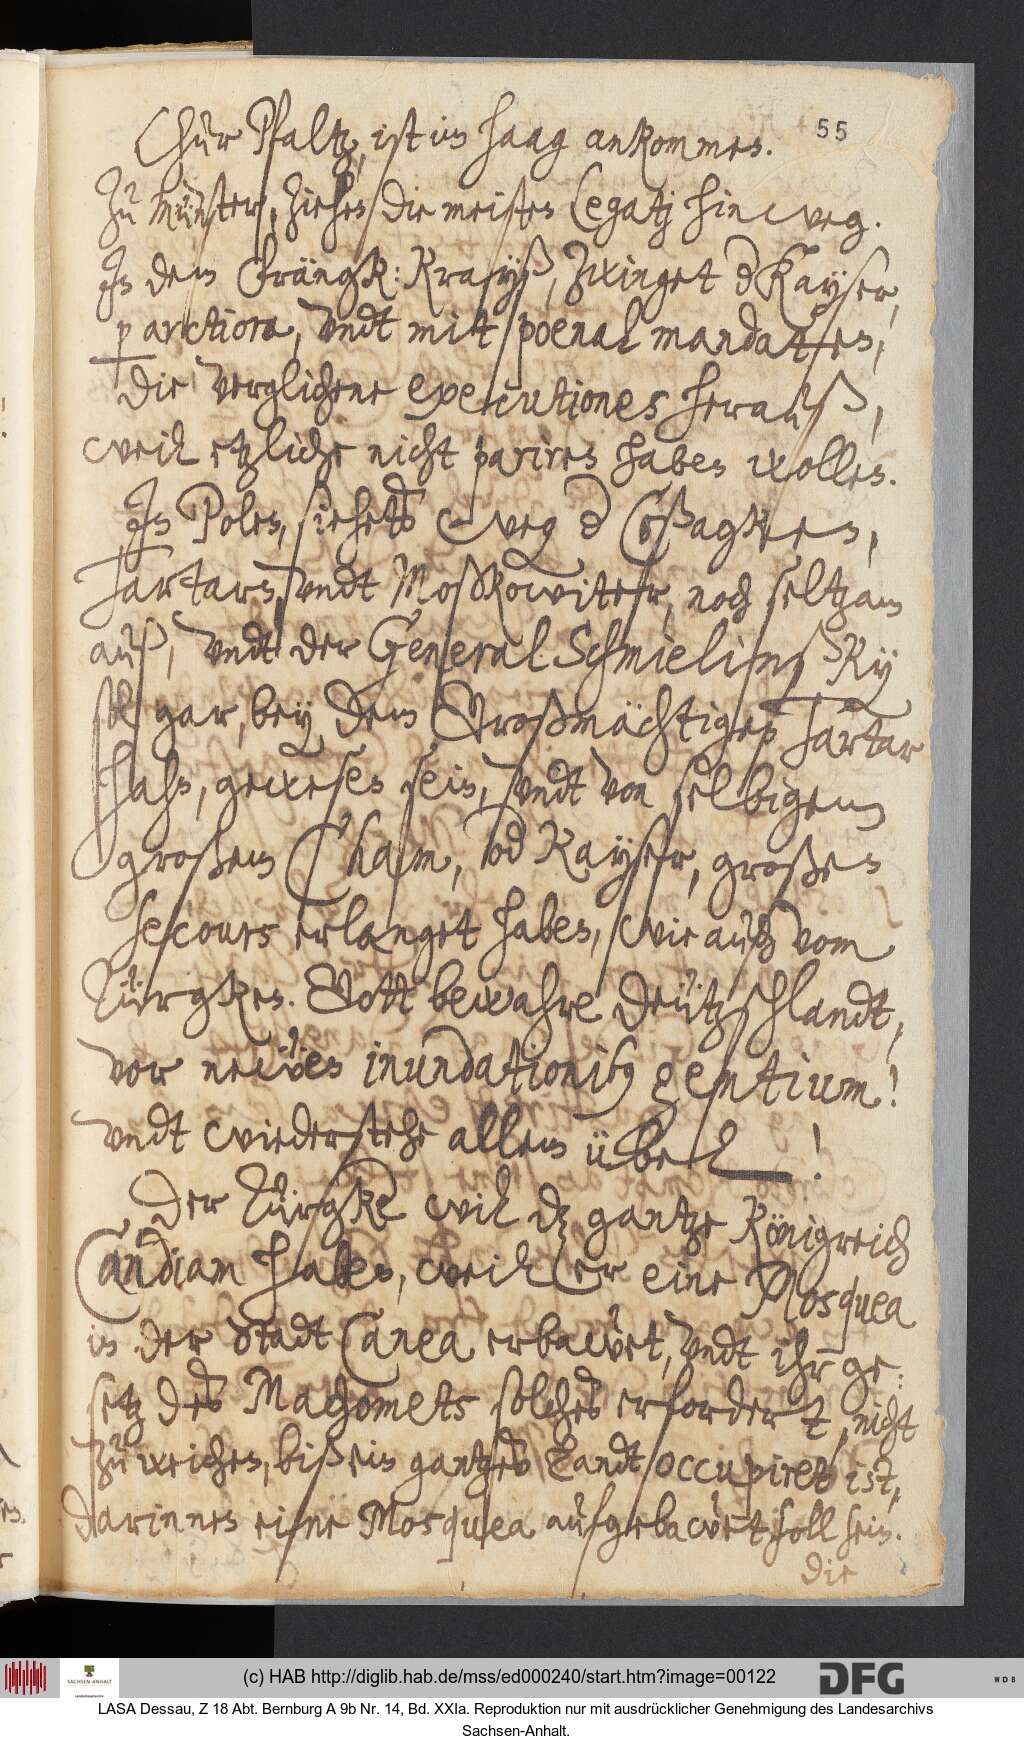 55
Chur Pfaltz, ist in Haag ankommen.
Zu Münster, ziehen die meisten Legatj hinweg.
In dem Fränzk: Krayß, zwinget d Kayser,
p arctiora, undt mitt poenal mandatten,
die verglichene executiones herauß,
weil etzliche nicht pariren haben wollen.
In Polen, siehets wegen d Coßagken,
Tartarn, undt Moßkowiter, noch seltzam
auß, undt der General Schmielinßky
sol gar, bey dem Großmächtigen Tartar
Hahn, gewesen sein, undt von selbigem
großem Cham, od Kayser, großen
secours erlanget haben, wie auch vom
Türgken. Gott bewahre Deützschlandt,
vor newen inundationibus gentium!
undt wiederstehe allem übel!
Der Türgke wil dz gantze Königreich
Candiam haben, weil er eine Mosquea
in der Stadt Canea erbawet, undt ihr ge:
setz des Machomets solches erfordert, nicht
zu weichen, biß ein gantzes Landt occupiret ist,
darinnen eine Mosquea aufgebawet soll sein.
die
(c) HAB http://diglib.hab.de/mss/ed000240/start.htm?image=00122
DFG
WDB
SACHSEN-ANHALT
LASA Dessau, Z 18 Abt. Bernburg A 9b Nr. 14, Bd. XXIa. Reproduktion nur mit ausdrücklicher Genehmigung des Landesarchivs
Sachsen-Anhalt.